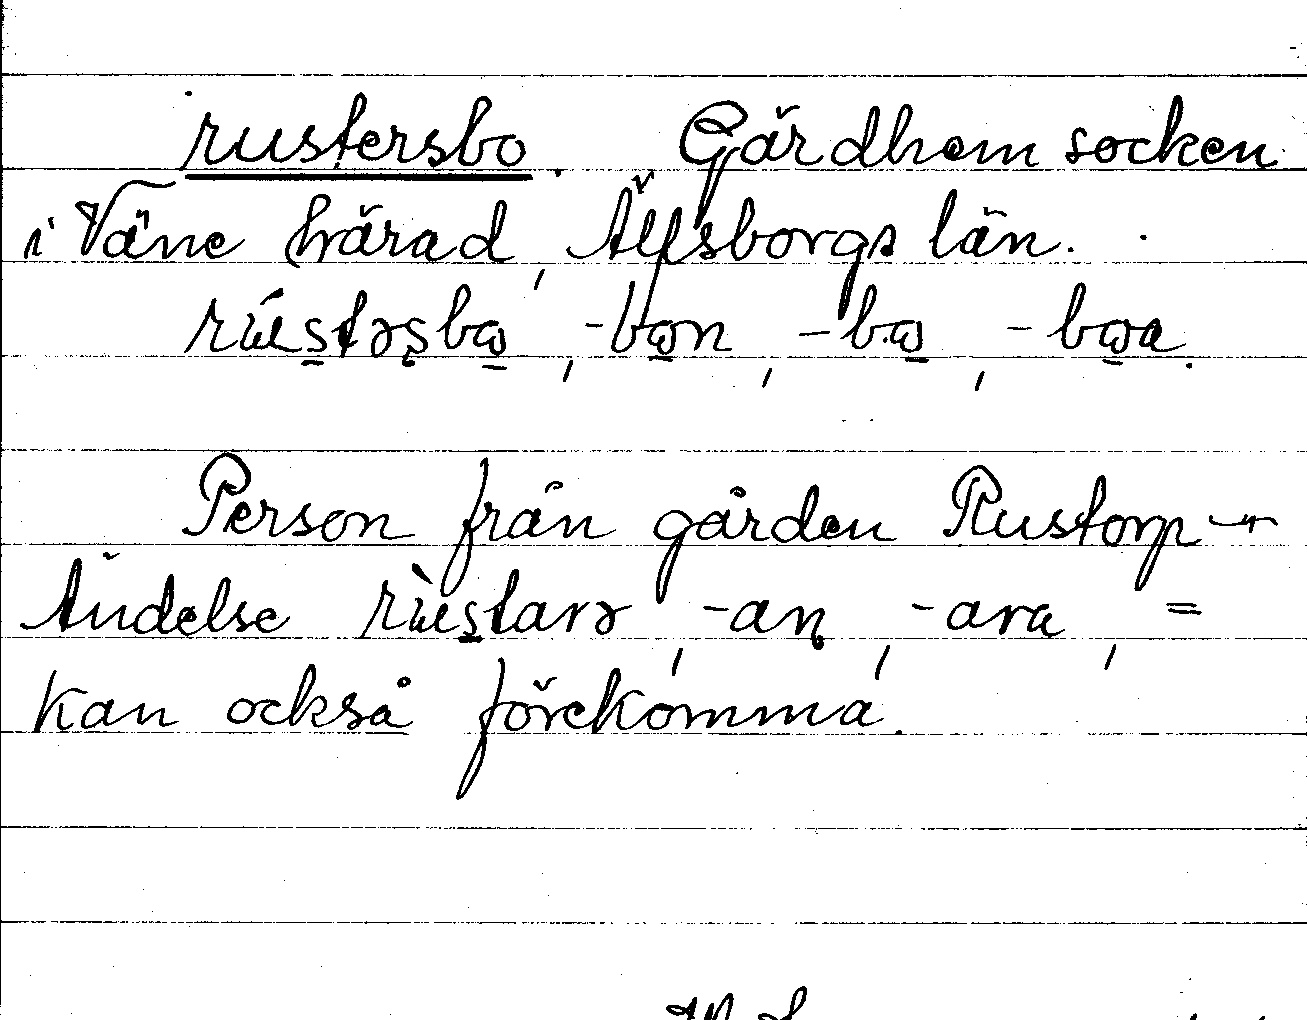 rustersbo. Gärdhem socken
i Väne härad, Älfsborgs län.
rústərsbω, -bωn, -bω, -bωa.
Person från gården Rustorp –
Ändelse rùstarə, -aɳ, -ara, =
kan också förekomma.